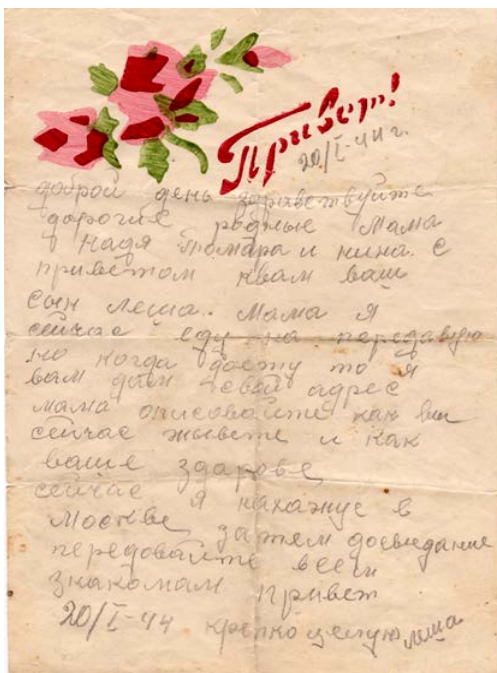 Привет!
20/I-44 г.
доброй день здравствуйте
дорогие родные Мама
Надя Томара и нина. с
приветом квам ваш
сын леша. Мама я
сейчас еду на передавую
но когда доеду то я
вам дам свой адрес
мама описовайте как вы
сейчас живете и как
ваше здаровье
сейчас я нахажус в
Москве, затем досведание
передовайте всем
знакомам привет
20/I-44 крепко целую леша